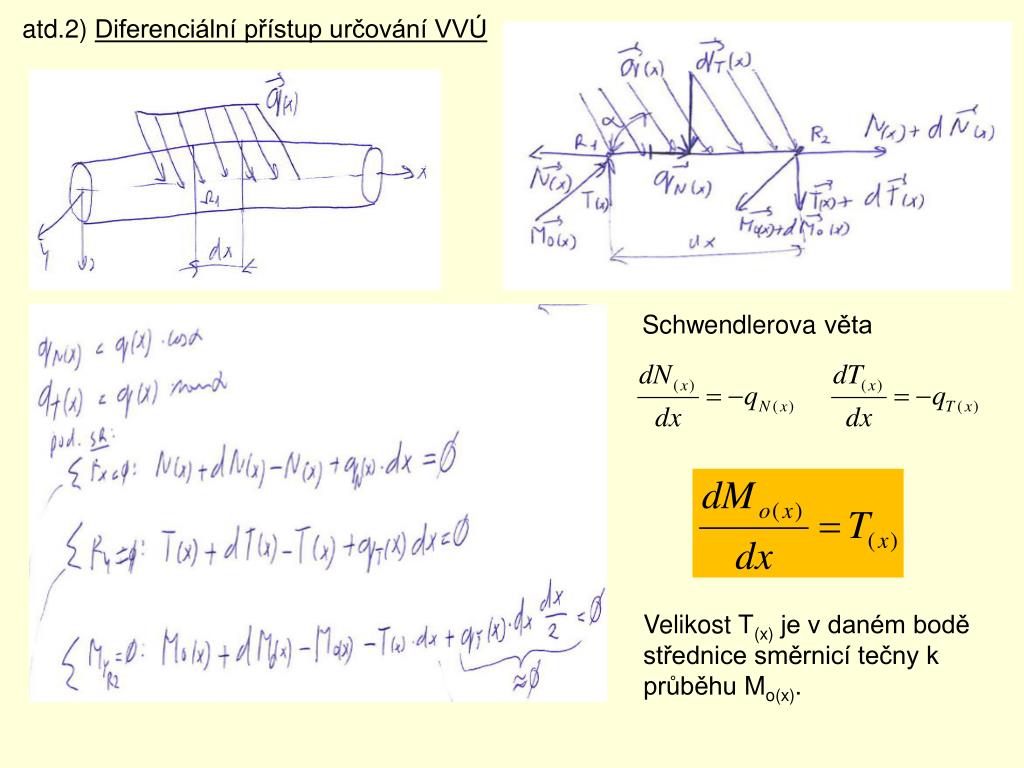 atd.2) Diferenciální přístup určování VVÚ
q(x)
x
R1
dx
y
z
q(x) dT(x)
α
R1
R2
N(x)+dN(x)
N(x)
T(x)
qN(x)
T(x)+dT(x)
Mo(x)
M(x)+dMo(x)
dx
qN(x) = q(x) · cosα
qT(x) = q(x)
pod. SR:
ΣFx=0: N(x)+dN(x)−N(x)+qN(x)·dx=0
ΣFy=0: T(x)+dT(x)−T(x)+qT(x)dx=0
ΣMyR2=0: Mo(x)+dMo(x)−Mo(x)−T(x)·dx+qT(x)·dx dx/2=0
≈0
Schwendlerova věta
dN(x)/dx = −qN(x) dT(x)/dx = −qT(x)
dMo(x)/dx = T(x)
Velikost T(x) je v daném bodě
střednice směrnicí tečny k
průběhu Mo(x).